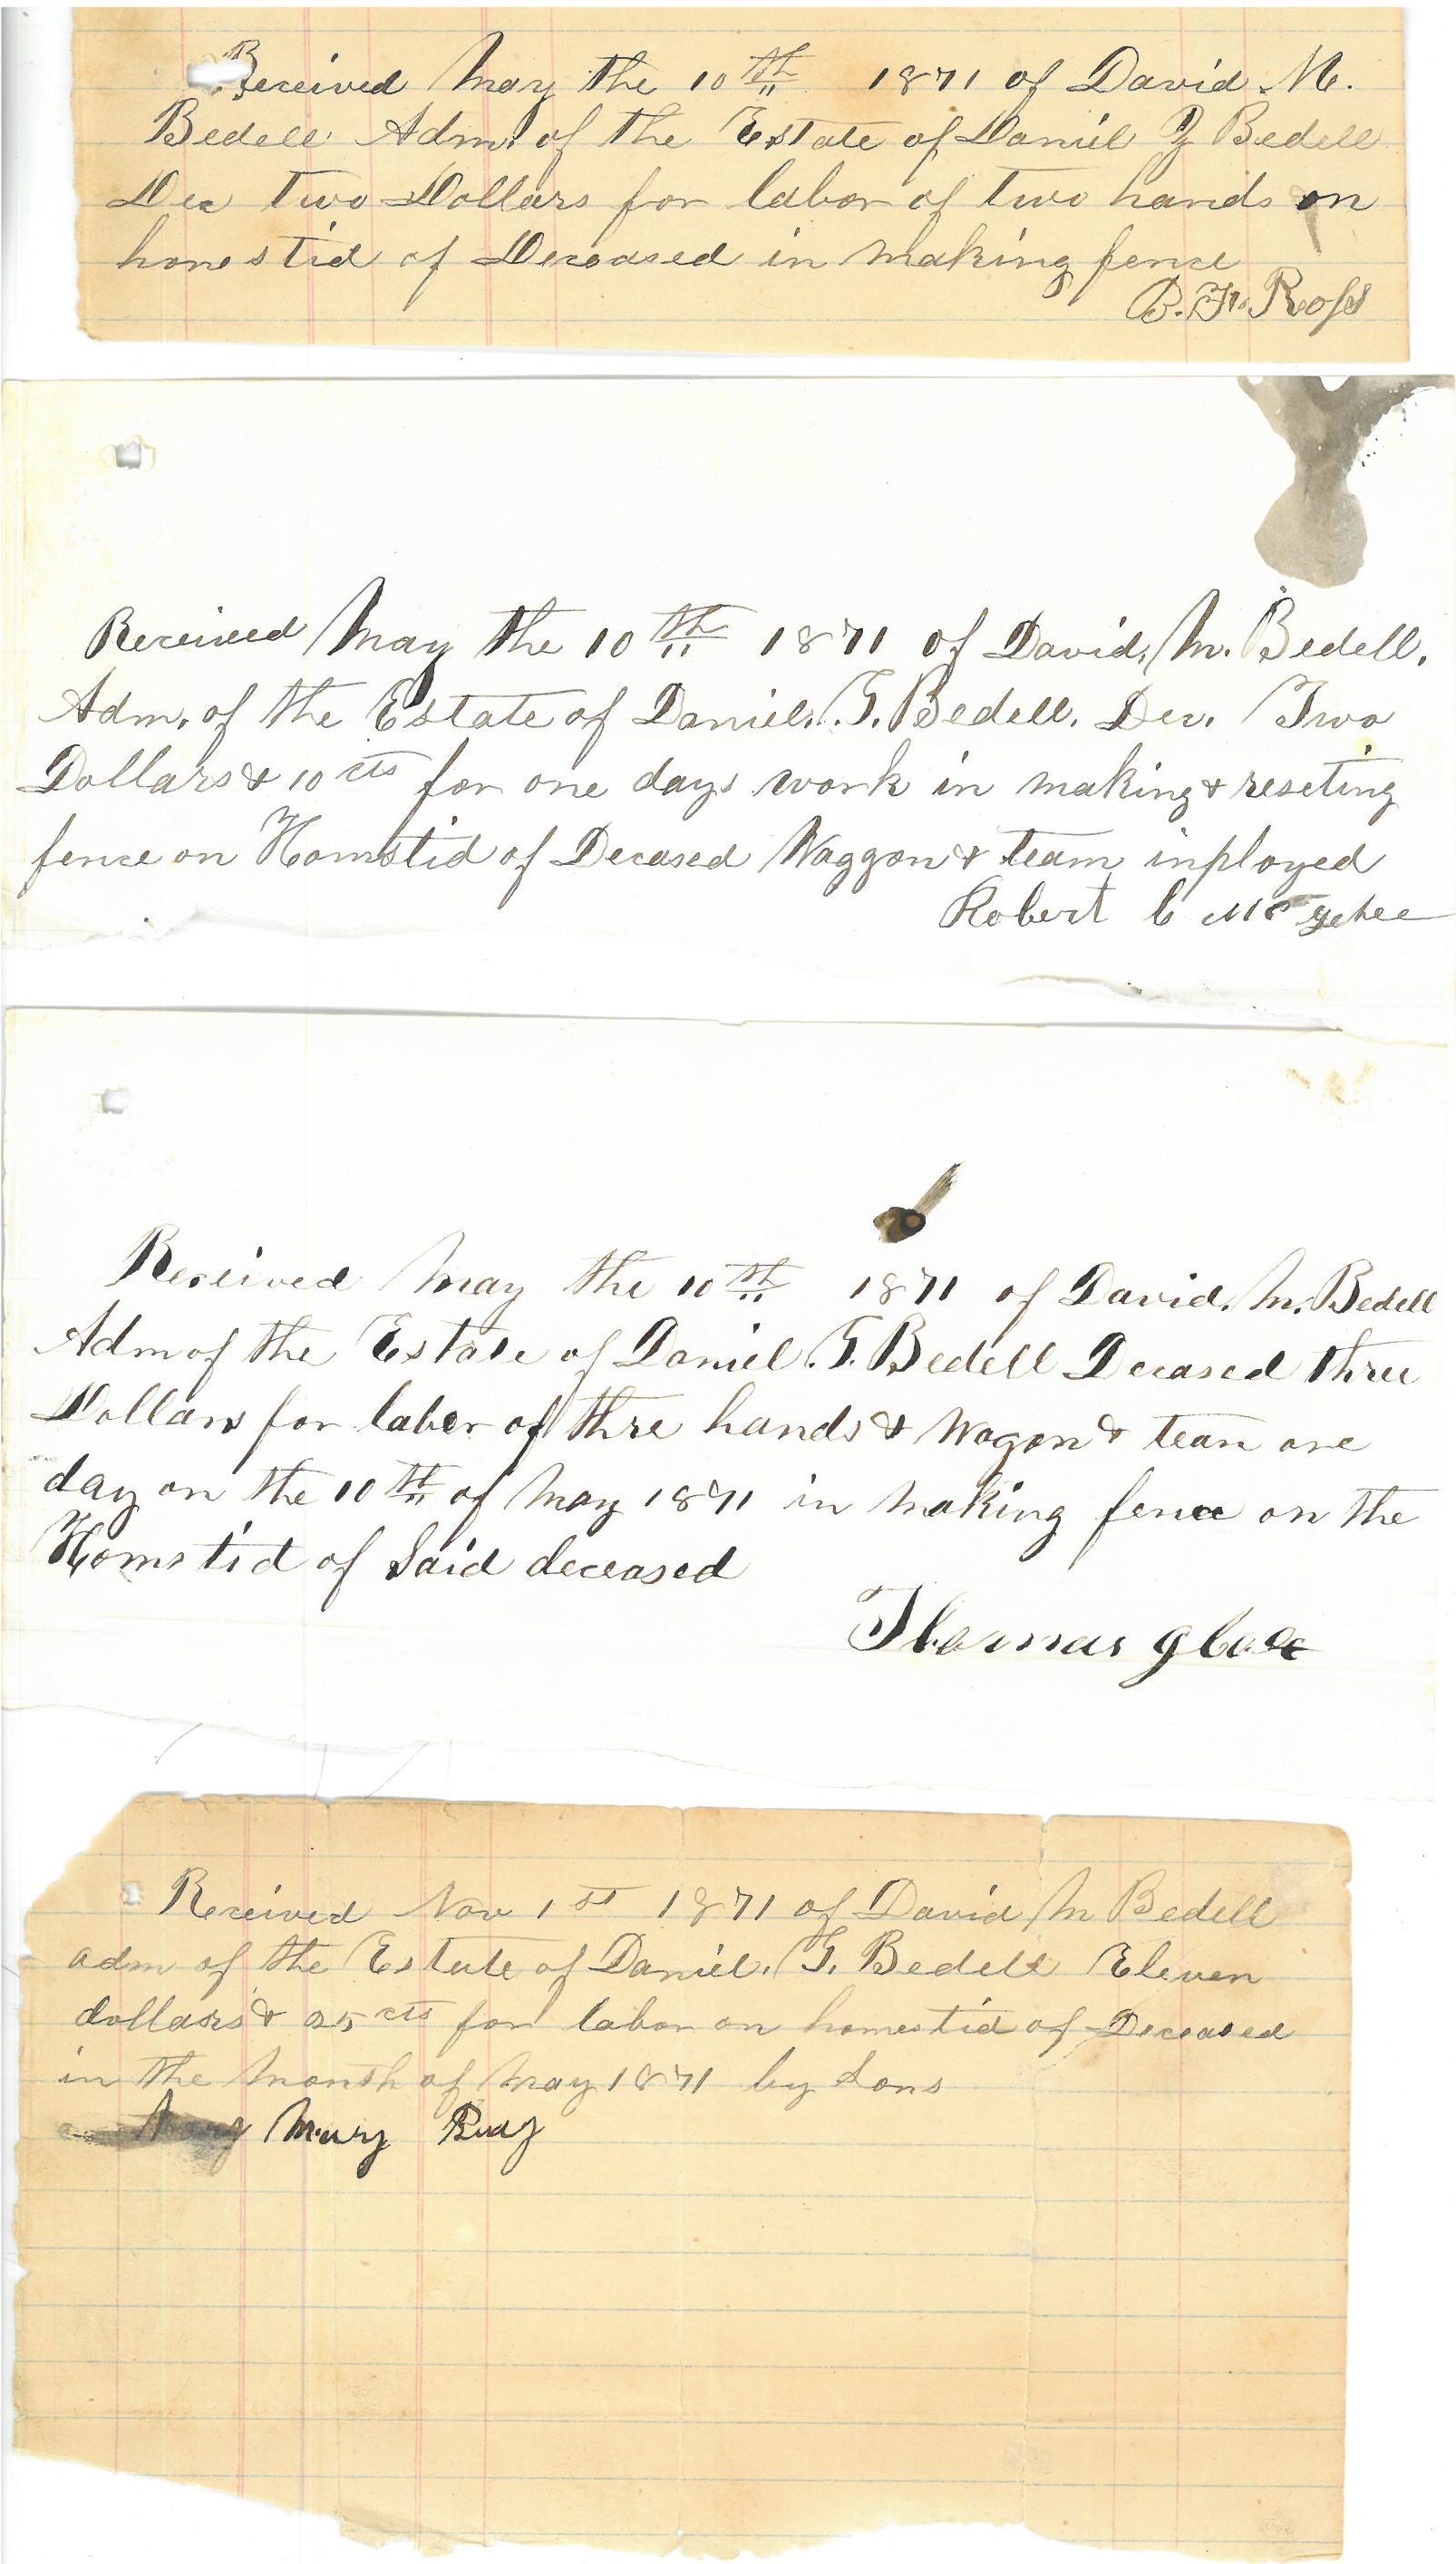 Received May the 10th 1871 of David M.
Bedell Adm. of the Estate of Daniel Bedell
Dec two Dollars for labor of two hands on
homestid of Deceased in making fence
B. F. Ross
Received May the 10th 1871 of David. M. Bedell.
Adm. of the Estate of Daniel. T. Bedell. Dec. Two
Dollars & 10 cts for one days work in making & reseting
fence on Homstid of Decased Waggon & team inployed
Robert C Mc
Received May the 10th 1871 of David. M. Bedell
Adm of the Estate of Daniel. T. Bedell Decased thre
Dollars for labor of thre hands & Wagon & team one
day on the 10th of May 1871 in making fence on the
Homstid of Said deceased
Thomas
Received Nov 1st 1871 of David M Bedell
adm of the Estate of Daniel. T. Bedell Eleven
dollars & 25 cts for labor on homestid of Deceased
in the Month of May 1871 by Sons
Mary